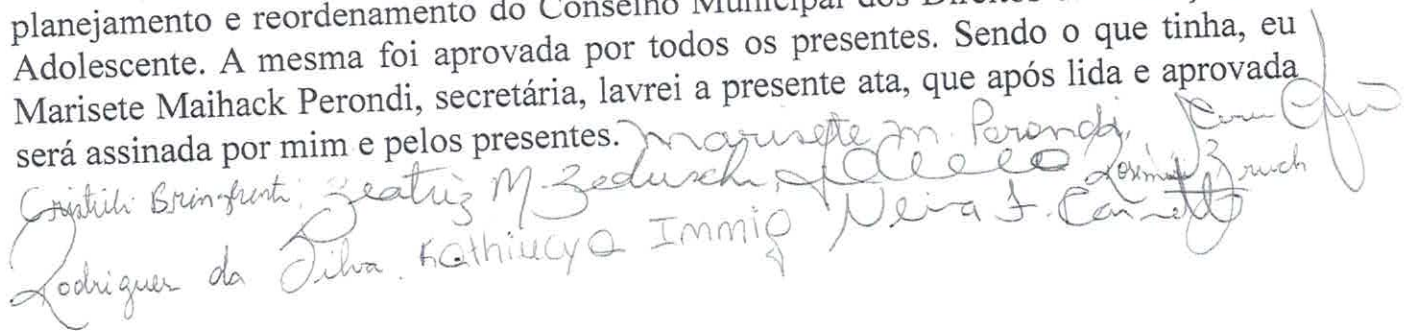 planejamento e reordenamento do Conselho Municipal dos Direitos
Adolescente. A mesma foi aprovada por todos os presentes. Sendo o que tinha, eu
Marisete Maihack Perondi, secretária, lavrei a presente ata, que após lida e aprovada
será assinada por mim e pelos presentes. Marisete M. Perondi,
Beatriz M. Zeduschi, Bruch
Rodrigues da Silva. Kathiucya Immig Neiva F.